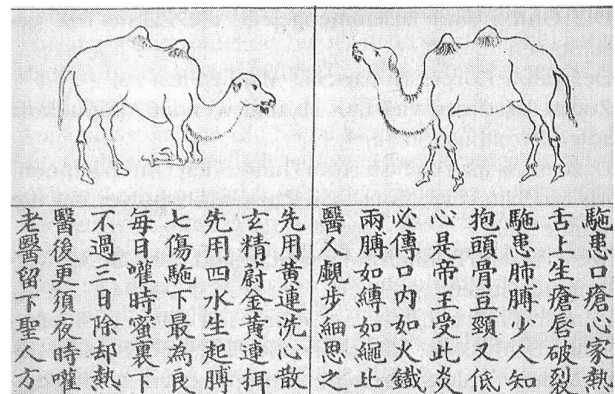 駞患口瘡心家熱
舌上生瘡唇破裂
駞患肺膊少人知
抱頭骨豆頸又低
心是帝王受此炎
必傳口内如火鐵
兩膊如縛如繩此
醫人覷步細思之
先用黃連洗心散
玄精蔚金黃連挕
先用四水生起膊
七傷駞下最為良
每日嚾時蜜裏下
不過三日除却熱
醫後更須夜時嚾
老醫留下聖人方